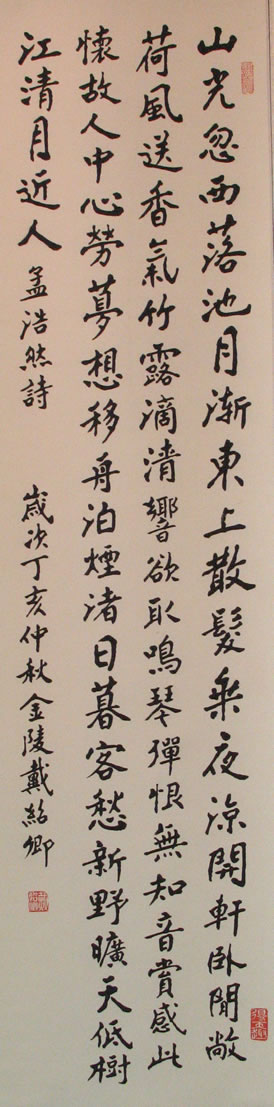 山光忽西落池月渐東上散髮乘夜涼開軒臥閒敞
荷風送香氣竹露滴清響欲取鳴琴彈恨無知音賞感此
懷故人中心勞夢想移舟泊煙渚日暮客愁新野曠天低樹
江清月近人 孟浩然詩 歲次丁亥仲秋金陵戴紹卿